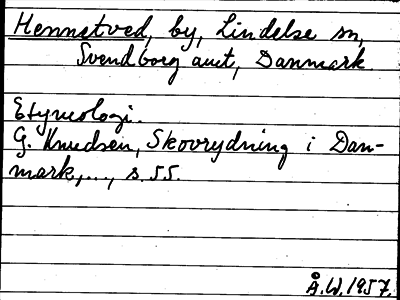 Hennetved, by, Lindelse sn,
Svendborg amt, Danmark.
Etymologi.
G. Knudsen, Skovrydning i Dan-
mark,..., s. 55.
Å.W. 1957.